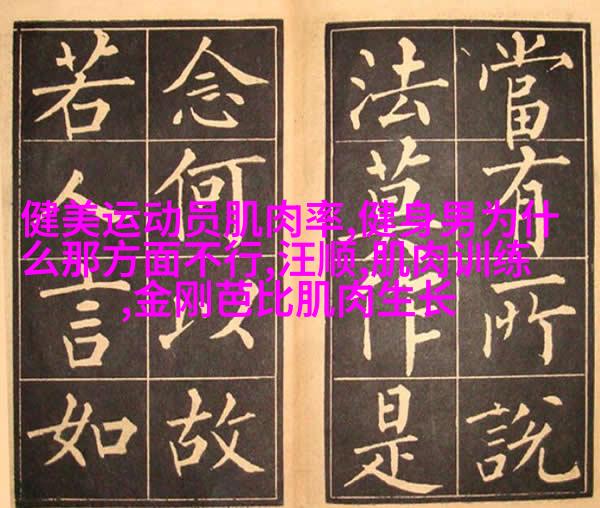 當有所說
法莫作是
念何以故
若人言如
健美运动员肌肉率,健身男为什
么那方面不行,汪顺,肌肉训练
,金刚芭比肌肉生长